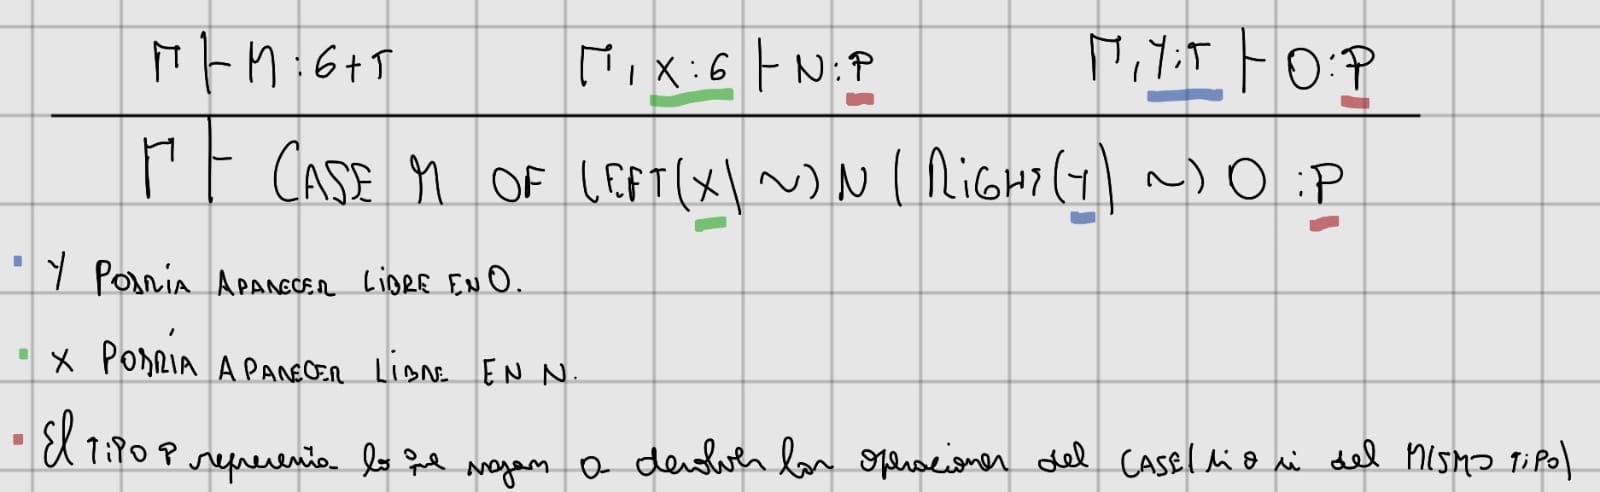 Γ ⊢ M : σ + τ    Γ, X : σ ⊢ N : P    Γ, Y : τ ⊢ O : P
Γ ⊢ CASE M OF LEFT(X) ~> N | RIGHT(Y) ~> O : P
Y PODRÍA APARECER LIBRE EN O.
X PODRÍA APARECER LIBRE EN N.
El TIPO P representa lo que vayan a devolver las operaciones del CASE (si o si del MISMO TIPO)